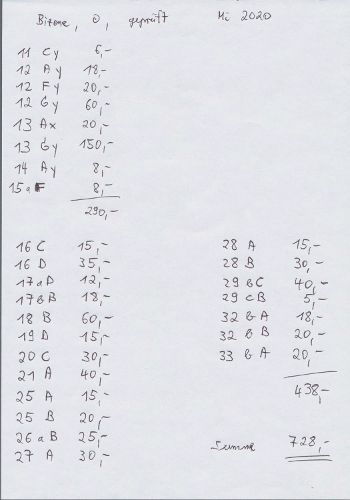 Bizone, O, geprüft Mi 2020
11 Cy 6,-
12 Ay 18,-
12 Fy 20,-
12 Gy 60,-
13 Ax 20,-
13 Gy 150,-
14 Ay 8,-
15a F 8,-
290,-
16 C 15,-
16 D 35,-
17aD 12,-
17bB 18,-
18 B 60,-
19 D 15,-
20 C 30,-
21 A 40,-
25 A 15,-
25 B 20,-
26 aB 25,-
27 A 30,-
28 A 15,-
28 B 30,-
29 bC 40,-
29 cB 5,-
32 bA 18,-
32 bB 20,-
33 bA 20,-
438,-
Summe 728,-